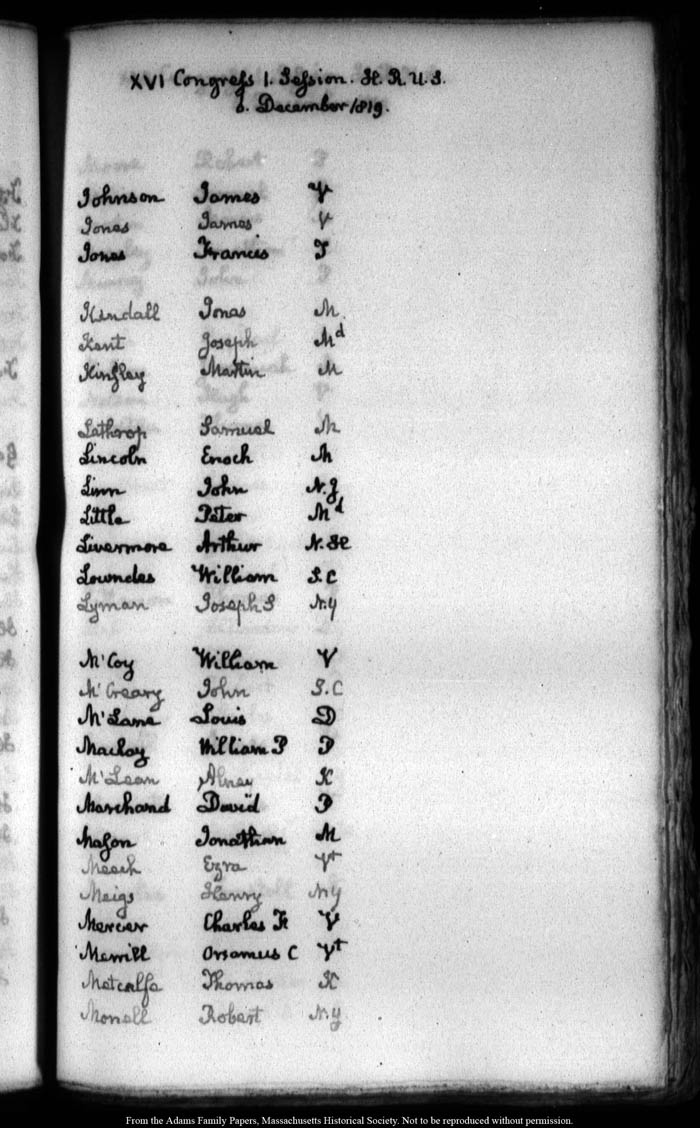 XVI Congress 1. Session. H. R. U. S.
6. December 1819.
Johnson James V
Jones James V
Jones Francis T
Kendall Jonas M.
Kent Joseph Md
Kinsley Martin M
Lathrop Samuel M
Lincoln Enoch M
Linn John N. J
Little Peter Md
Livermore Arthur N. H
Lowndes William S. C
Lyman Joseph S N.Y
M'Coy William V
M'Creary John S. C
M'Lane Louis D
Maclay William P P
M'Lean Alney K
Marchand David P
Mason Jonathan M
Meech Ezra Vt
Meigs Henry N.Y
Mercer Charles F. V
Merrill Orsamus C Vt
Metcalfe Thomas K
Monell Robert N.Y.
From the Adams Family Papers, Massachusetts Historical Society. Not to be reproduced without permission.